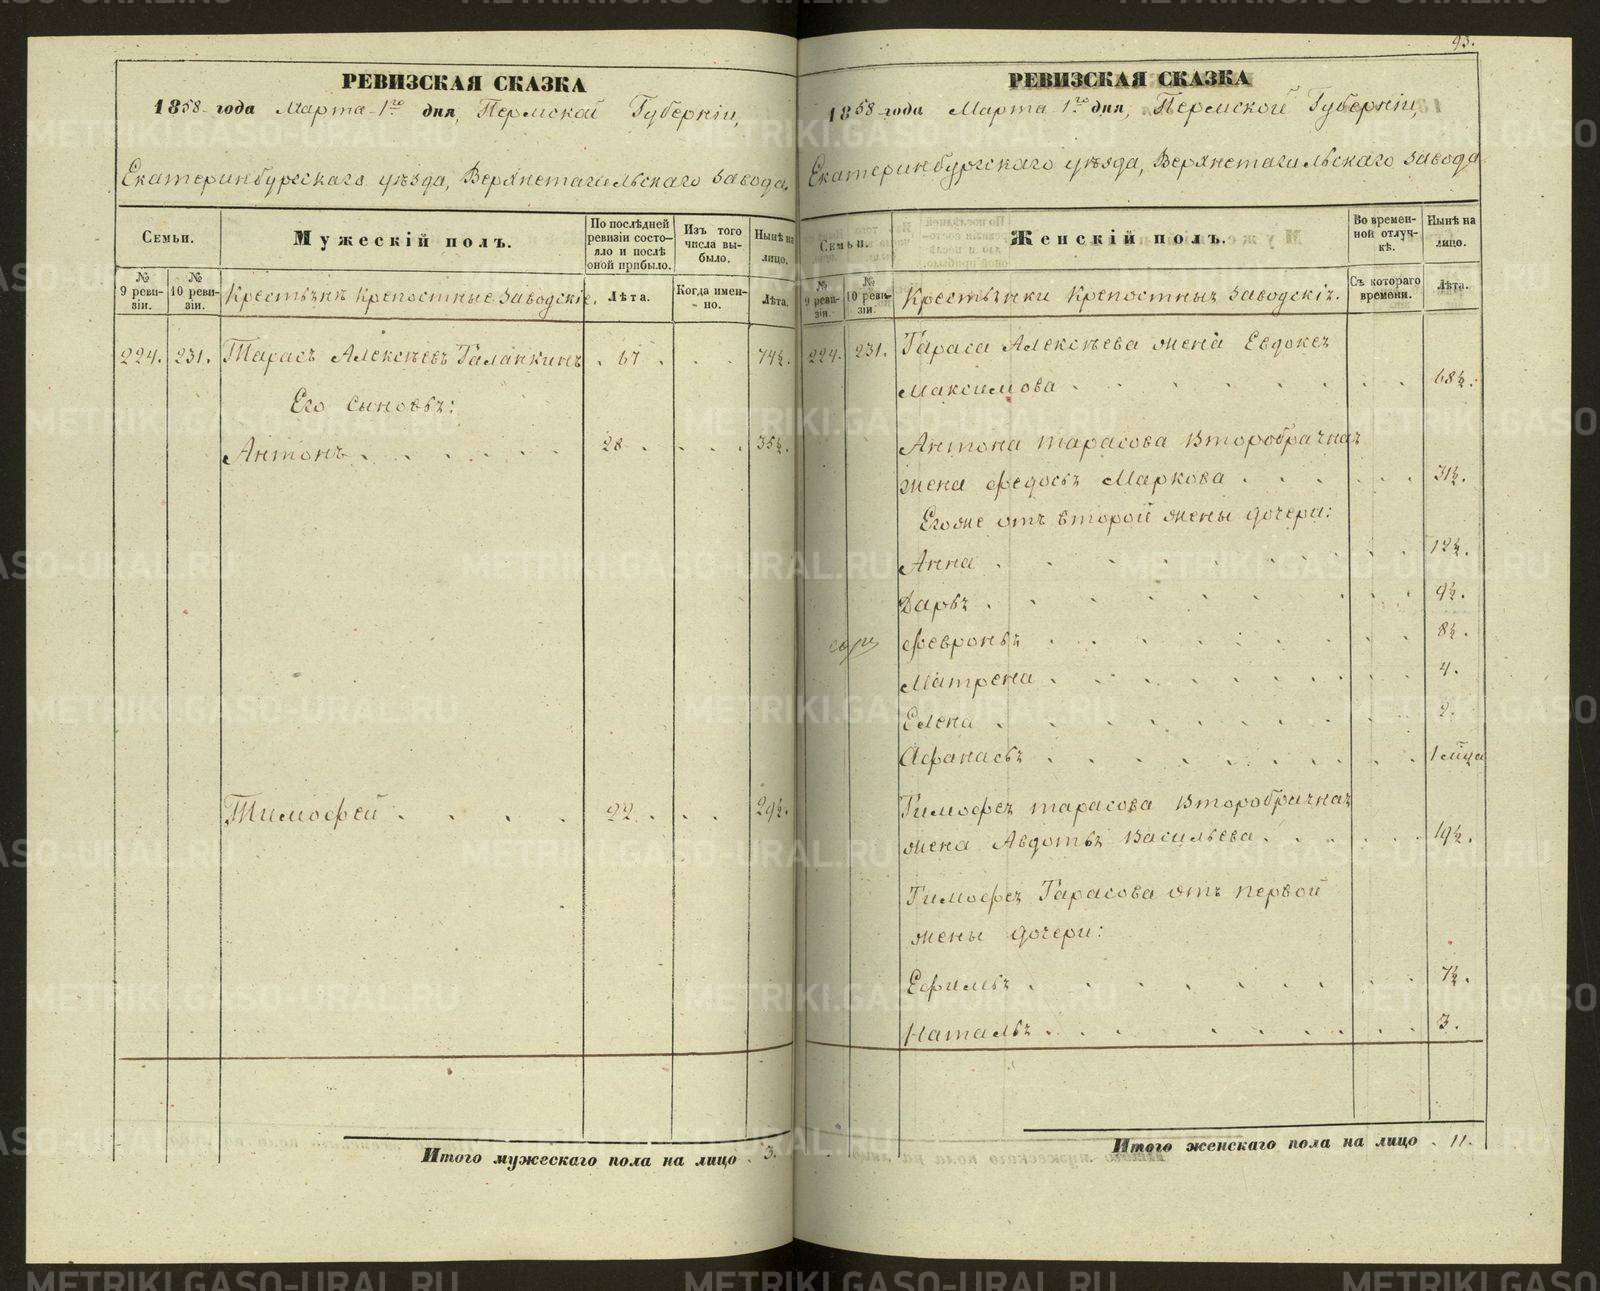 РЕВИЗСКАЯ СКАЗКА
1858 года Марта 1го дня, Пермской Губерніи,
Екатеринбургскаго уѣзда, Верхнетагильскаго завода.
Семьи.
Мужескій полъ.
По послѣдней ревизіи состояло и послѣ оной прибыло.
Изъ того числа выбыло.
Нынѣ на лицо.
№ 9 ревизіи.
№ 10 ревизіи.
Крестьянѣ крепостные заводскіе.
Лѣта.
Когда именно.
Лѣта.
224. 231. Тарасъ Алексѣевъ Галапкинъ . 67 . . . 74½.
Его сыновья:
Антонъ . . . . . . 28 . . . . 35½.
Тимофей . . . . 22 . . . 29½.
Итого мужескаго пола на лицо . 3.
93.
РЕВИЗСКАЯ СКАЗКА
1858 года Марта 1го дня, Пермской Губерніи,
Екатеринбургскаго уѣзда, Верхнетагильскаго завода
Семьи.
Женскій полъ.
Во временной отлучкѣ.
Нынѣ на лицо.
№ 9 ревизіи.
№ 10 ревизіи.
Крестьянки крепостныя заводскія.
Съ котораго времени.
Лѣта.
224. 231. Тараса Алексѣева жена Евдокея
Максимова . . . . . . . . 68½.
Антона Тарасова второбрачная
жена Федосья Маркова . . . . . . 31½.
Его же отъ второй жены дочери:
Анна . . . . . . . . 12½.
Дарья . . . . . . . . 9½.
Февронья . . . . . . . 8½.
Матрена . . . . . . . . 4.
Елена . . . . . . . . 2.
Афанасья . . . . . . . . 1 мѣца
Тимофея Тарасова второбрачная
жена Авдотья Васильева . . . . . . 19½.
Тимофея Тарасова отъ первой
жены дочери:
Ефимья . . . . . . . . 7½.
Наталья . . . . . . . . 3.
Итого женскаго пола на лицо . 11.
METRIKI.GASO-URAL.RU